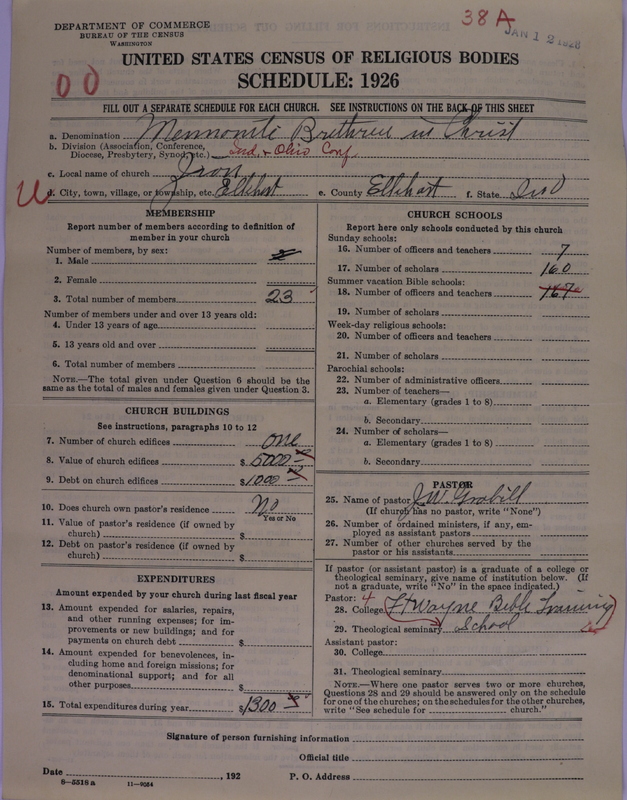 DEPARTMENT OF COMMERCE
BUREAU OF THE CENSUS
WASHINGTON
38A
JAN 12 1928
UNITED STATES CENSUS OF RELIGIOUS BODIES
SCHEDULE: 1926
00
FILL OUT A SEPARATE SCHEDULE FOR EACH CHURCH. SEE INSTRUCTIONS ON THE BACK OF THIS SHEET
a. Denomination Mennonite Brethren in Christ
b. Division (Association, Conference,
Diocese, Presbytery, Synod, etc.) Ind. + Ohio Conf.
c. Local name of church
U d. City, town, village, or township, etc. Elkhart e. County Elkhart f. State Ind
MEMBERSHIP
Report number of members according to definition of
member in your church
Number of members, by sex:
1. Male
2. Female
3. Total number of members 23
Number of members under and over 13 years old:
4. Under 13 years of age
5. 13 years old and over
6. Total number of members
NOTE.—The total given under Question 6 should be the
same as the total of males and females given under Question 3.
CHURCH BUILDINGS
See instructions, paragraphs 10 to 12
7. Number of church edifices one
8. Value of church edifices $ 5000
9. Debt on church edifices $ 1000
10. Does church own pastor's residence No
Yes or No
11. Value of pastor's residence (if owned by
church) $
12. Debt on pastor's residence (if owned by
church) $
EXPENDITURES
Amount expended by your church during last fiscal year
13. Amount expended for salaries, repairs,
and other running expenses; for im-
provements or new buildings; and for
payments on church debt $
14. Amount expended for benevolences, in-
cluding home and foreign missions; for
denominational support; and for all
other purposes $
15. Total expenditures during year $ 1300
CHURCH SCHOOLS
Report here only schools conducted by this church
Sunday schools:
16. Number of officers and teachers 7
17. Number of scholars 160
Summer vacation Bible schools:
18. Number of officers and teachers 167
19. Number of scholars
Week-day religious schools:
20. Number of officers and teachers
21. Number of scholars
Parochial schools:
22. Number of administrative officers
23. Number of teachers—
a. Elementary (grades 1 to 8)
b. Secondary
24. Number of scholars—
a. Elementary (grades 1 to 8)
b. Secondary
PASTOR
25. Name of pastor J.W. Grabill
(If church has no pastor, write "None")
26. Number of ordained ministers, if any, em-
ployed as assistant pastors
27. Number of other churches served by the
pastor or his assistants
If pastor (or assistant pastor) is a graduate of a college or
theological seminary, give name of institution below. (If
not a graduate, write "No" in the space indicated.)
Pastor: 4
28. College Ft Wayne Bible Training
29. Theological seminary School
Assistant pastor:
30. College
31. Theological seminary
NOTE.—Where one pastor serves two or more churches,
Questions 28 and 29 should be answered only on the schedule
for one of the churches; on the schedules for the other churches,
write "See schedule for church."
Signature of person furnishing information
Official title
Date , 192 P. O. Address
8—5518 a 11—9034